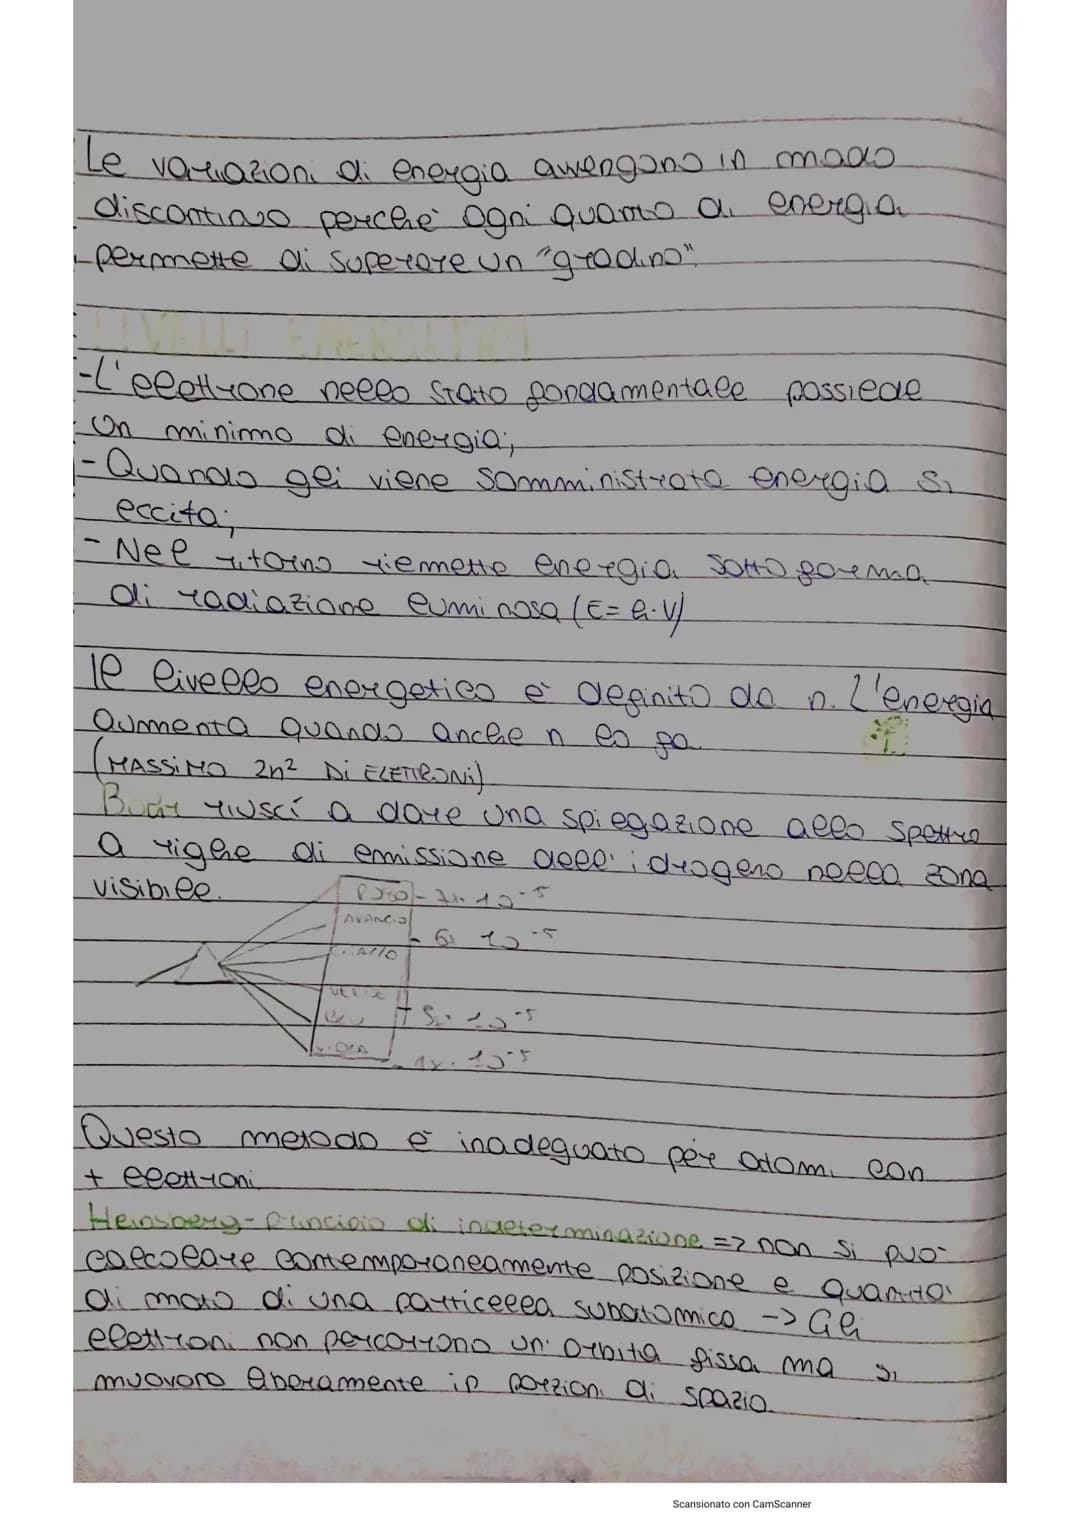 Le variazioni di energia avvengono in modo
discontinuo perché ogni quanto di energia
permette di superare un "gradino".
LIVELLI ENERGETICI
-L'elettrone nello stato fondamentale possiede
un minimo di energia;
- Quando gli viene somministrata energia si
eccita;
- Nel ritorno riemette energia sotto forma
di radiazione luminosa (E= h·V)
Il livello energetico è definito da n. L'energia
aumenta quando anche n lo fa.
(MASSIMO 2n² Di ELETTRONi)
Bohr riuscí a dare una spiegazione allo spettro
a righe di emissione dell'idrogeno nella zona
visibile.
ROSSO - 7x·10⁻⁵
ARANCIO
- 6x 10⁻⁵
GIALLO
VERDE
BLU - 5x·10⁻⁵
VIOLA - 4x·10⁻⁵
Questo metodo è inadeguato per atomi con
+ elettroni.
Heinsberg-principio di indeterminazione => non si può
calcolare contemporaneamente posizione e quantità
di moto di una particella subatomica -> Gli
elettroni non percorrono un'orbita fissa ma si
muovono liberamente in porzioni di spazio.
Scansionato con CamScanner